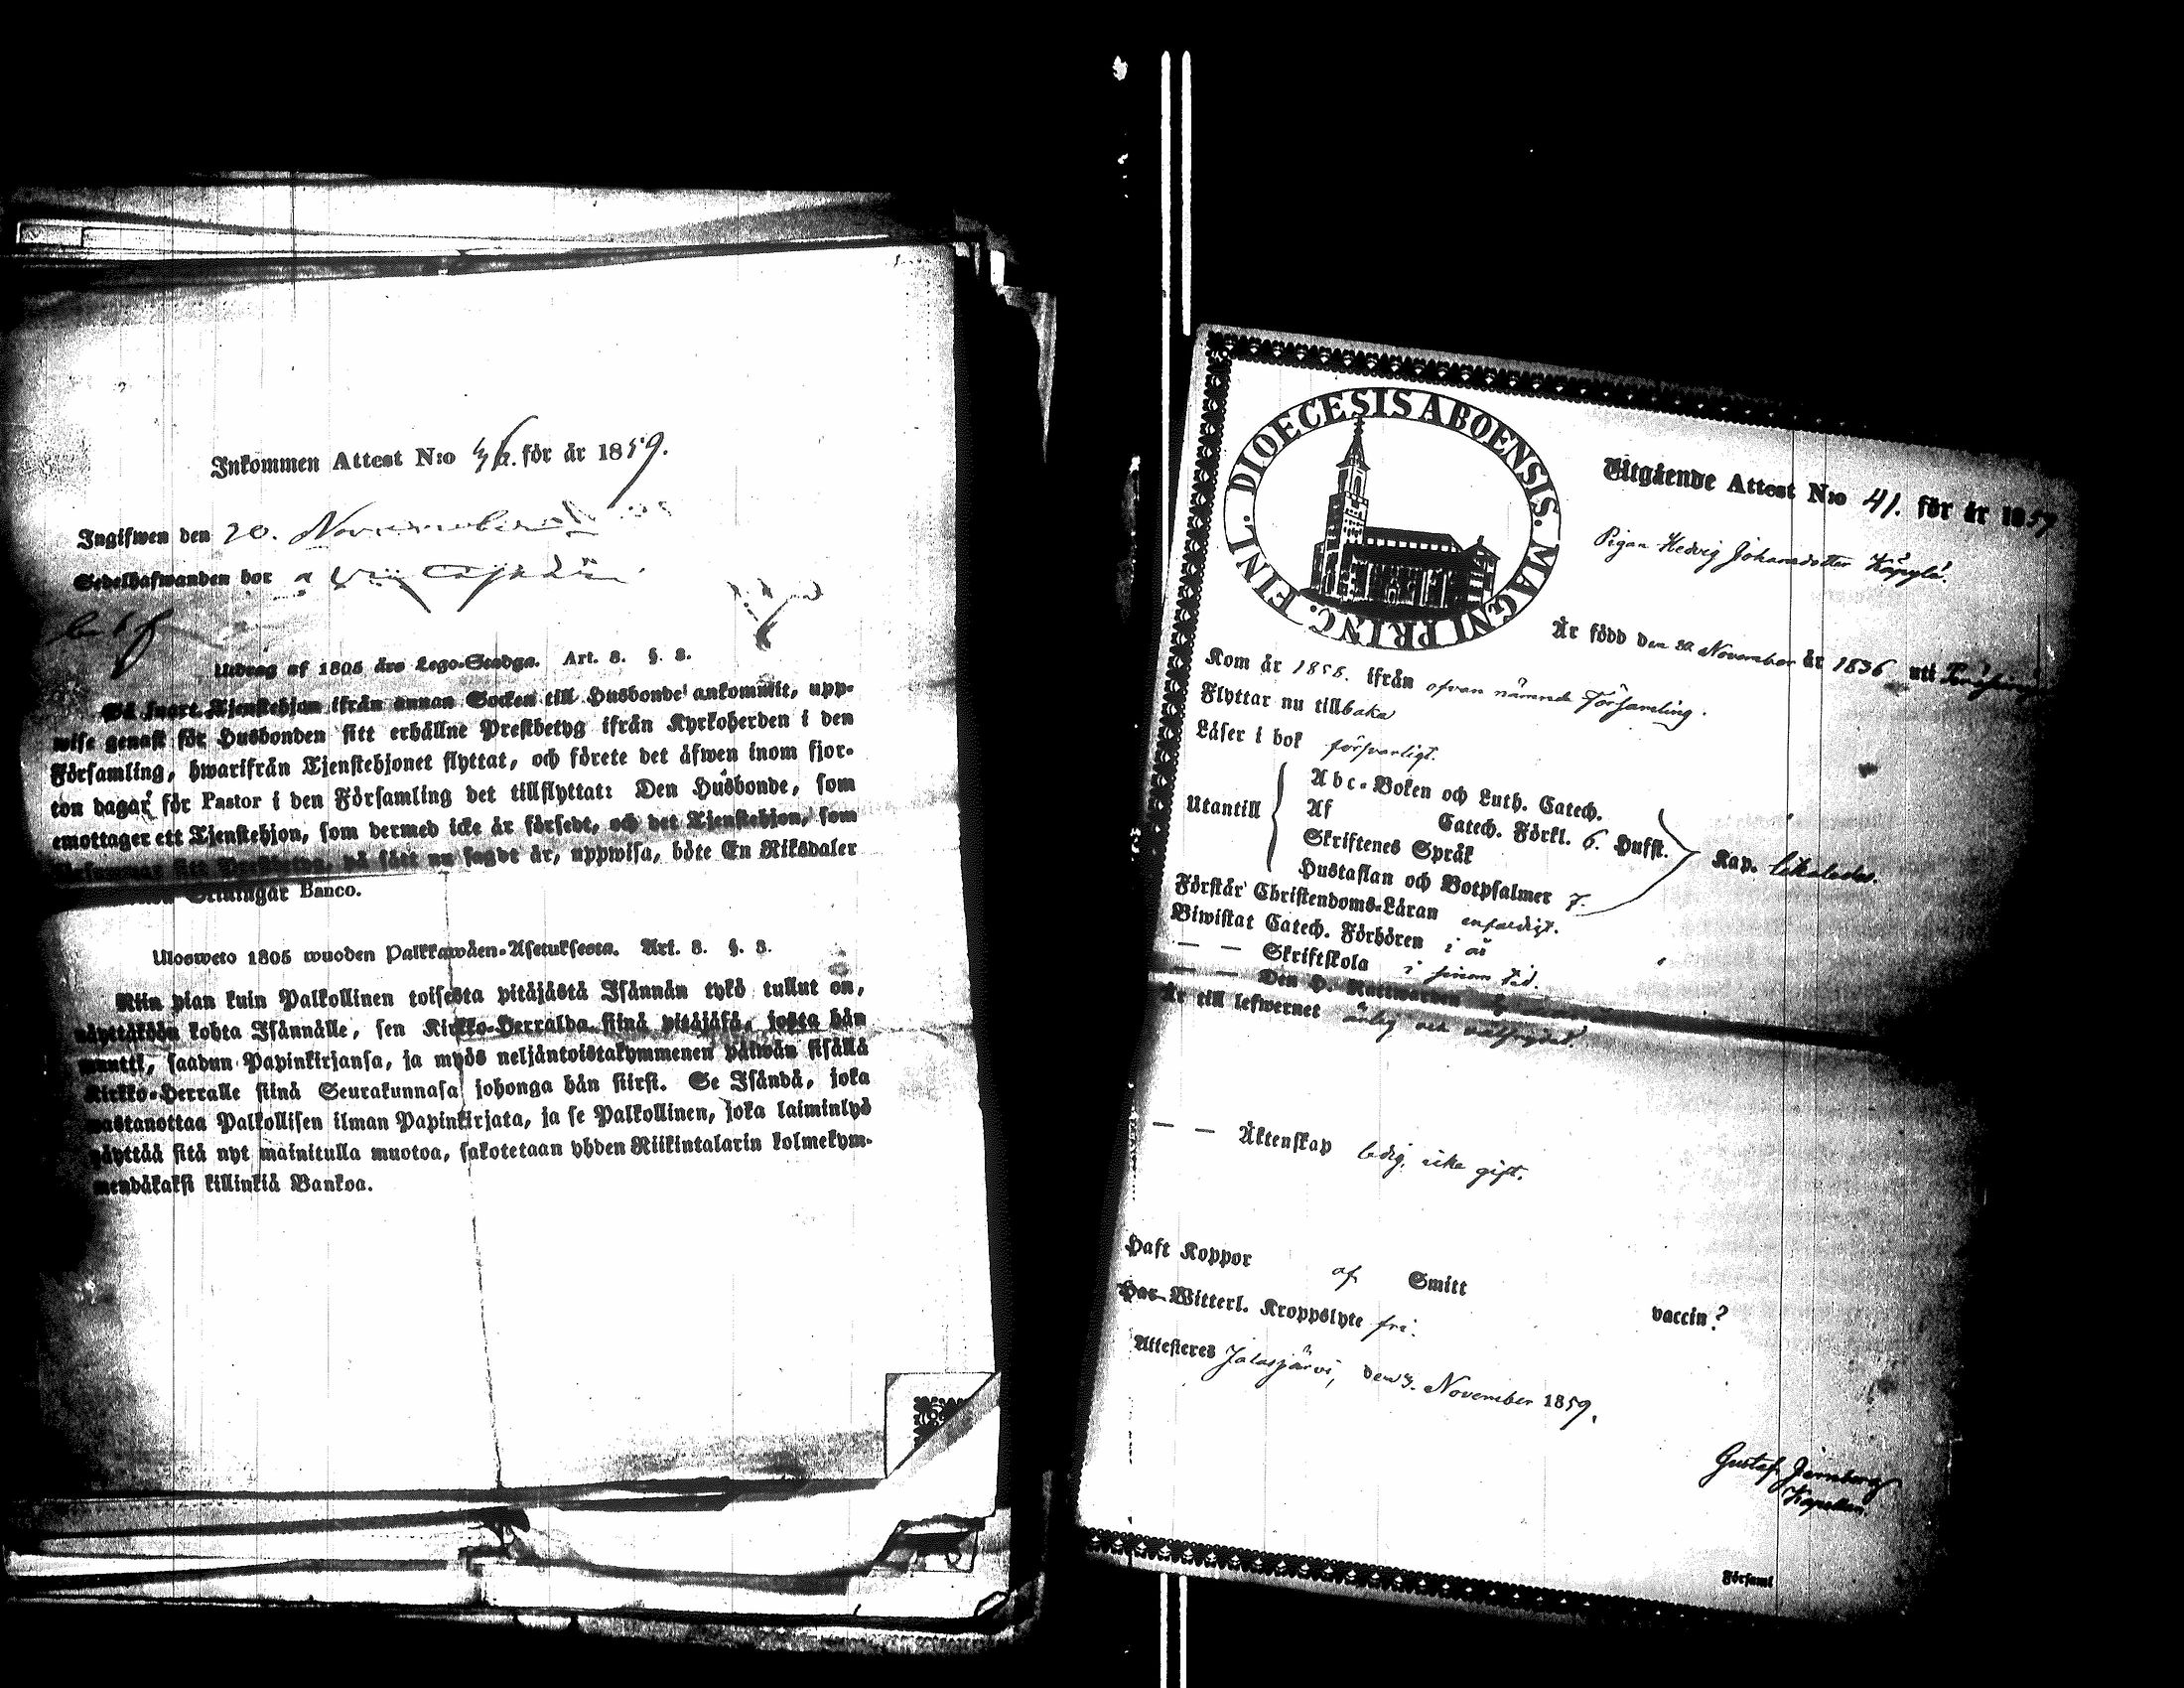 Inkommen Attest N:o 36. för år 1859.
Ingifwen den 20. November
Sedelhafwanden bor
Utdrag af 1805 års Lego-Stadga. Art. 8. §. 8.
Så snart Tjenstehjon ifrån annan Socken till Husbonde ankommit, upp-
wise genast för Husbonden sitt erhållne Prestbetyg ifrån Kyrkoherden i den
Församling, hwarifrån Tjenstehjonet flyttat, och förete det äfwen inom fjor-
ton dagar för Pastor i den Församling det tillflyttat: Den Husbonde, som
emottager ett Tjenstehjon, som dermed icke är försedt, och det Tjenstehjon, som
försummar sitt Prestbetyg, på sätt nu sagdt är, uppwisa, böte En Riksdaler
Skillingar Banco.
Ulosweto 1805 wuoden Palkkawäen-Asetuksesta. Art. 8. §. 8.
Niin pian kuin Palkollinen toisesta pitäjästä Isännän tykö tullut on,
näyttäköön kohta Isännälle, sen Kirkko-Herralda siinä pitäjäsä, josta hän
muutti, saadun Papinkirjansa, ja myös neljäntoistakymmenen päiwän sisällä
Kirkko-Herralle siinä Seurakunnasa johonga hän siirsi. Se Isändä, joka
wastanottaa Palkollisen ilman Papinkirjata, ja se Palkollinen, joka laiminlyö
näyttää sitä nyt mainitulla muotoa, sakotetaan yhden Riikintalarin kolmekym-
mendäkaksi killinkiä Bankoa.
DIOECESIS ABOENSIS. MAGNI PRINC. FINL.
Utgående Attest N:o 41. för år 1859
Pigan Hedvig Johansdotter Käpylä.
Är född den 30 November år 1836 uti
Kom år 1858. ifrån ofvan nämnde Församling.
Flyttar nu tillbaka
Läser i bok försvarligt.
Utantill
Abc-Boken och Luth. Catech.
Af Catech. Förkl. 6. Hufst.
Skriftenes Språk
Hustaflan och Botpsalmer 7.
Kap. likaledes.
Förstår Christendoms-Läran enfaldigt.
Biwistat Catech. Förhören i år
— — Skriftskola i sinom tid.
— — Den H. Nattwarden
Är till lefwernet ärlig och välfrejdad.
— — Äktenskap ledig, icke gift.
Haft Koppor af Smitt vaccin?
Har Witterl. Kroppslyte fri.
Attesteres Jalasjärvi, den 3. November 1859.
Gustaf Jernberg
Kapellan.
Församl